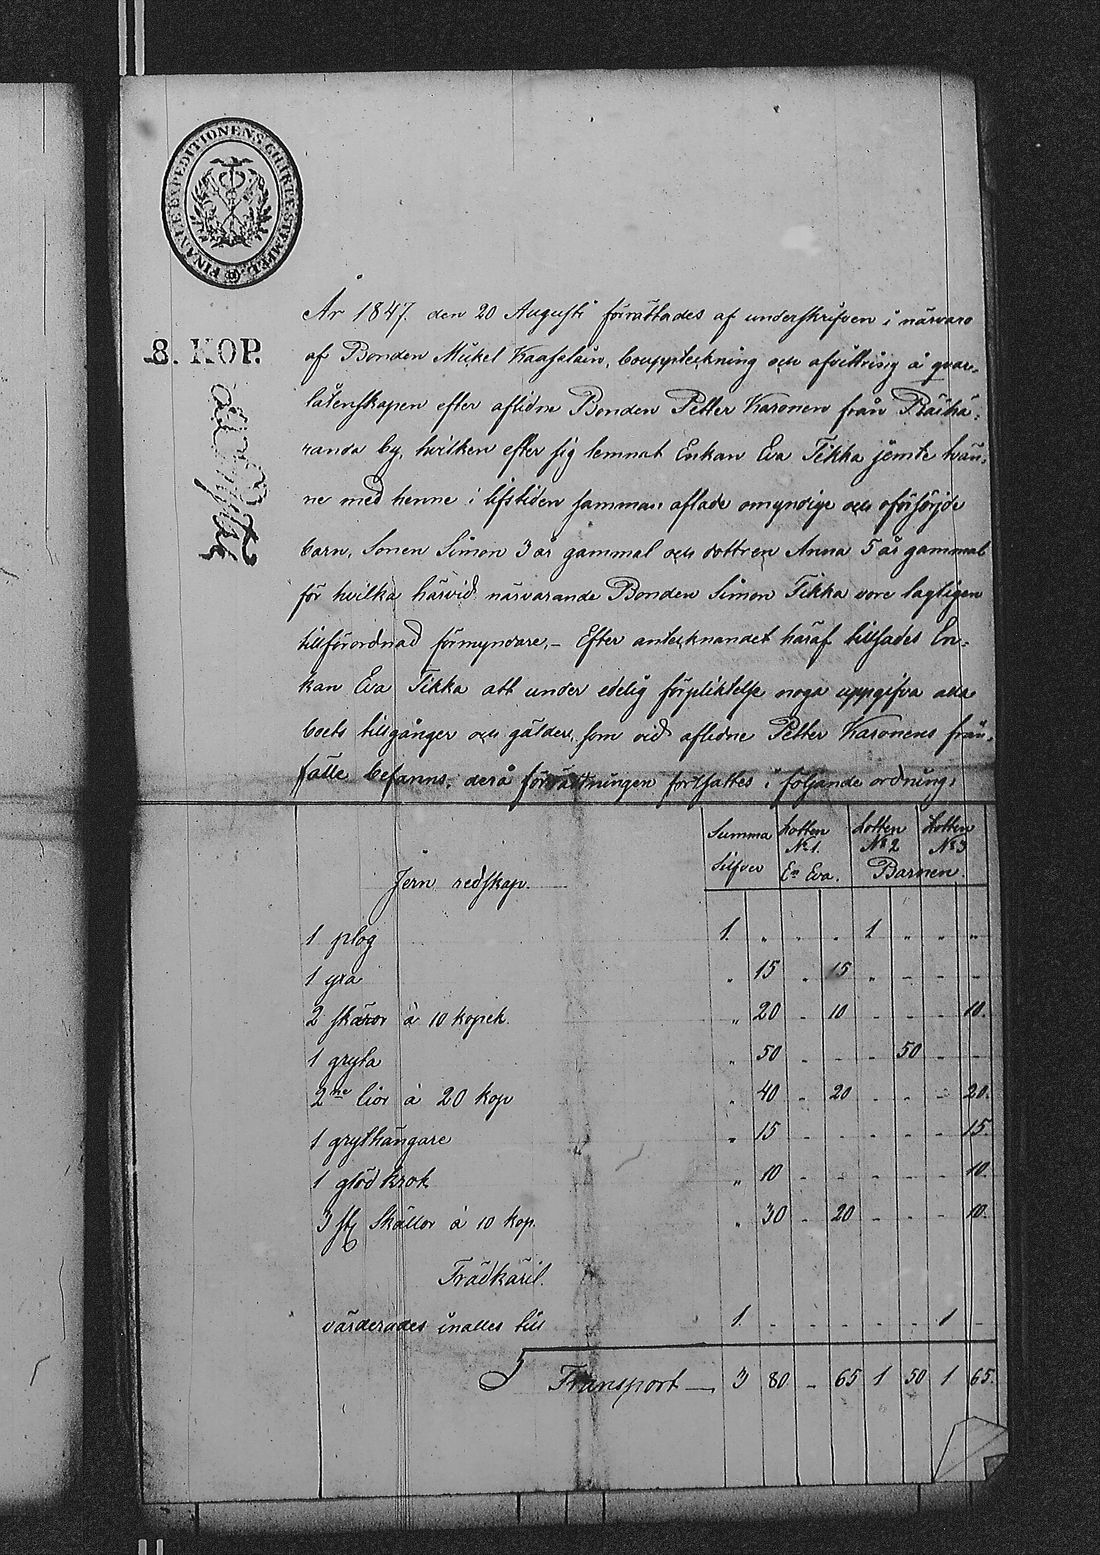 FINANCE EXPEDITIONENS CHARTÆ STEMPEL
8. KOP.
År 1847. den 20 Augusti förrättades af underskrifven i närvaro
af Bonden Mickel Kaasalain, bouppteckning och afvittring å qvar-
låtenskapen efter aflidne Bonden Petter Karonen från Räihä-
randa by, hvilken efter sig lemnat Enkan Eva Tikka jemte tvän-
ne med henne i lifstiden samman aflade omyndige och oförsörjde
barn, Sonen Simon 3 år gammal och dottren Anna 5 år gammal
för hvilka härvid närvarande Bonden Simon Tikka vore lagligen
tillförordnad förmyndare,- Efter antecknandet häraf tillsades En-
kan Eva Tikka att under edelig förpliktelse noga uppgifva alla
boets tillgångar och gälder, som vid aflidne Petter Karonens från-
fälle befanns, derå förrättningen fortsattes i följande ordning:
Summa Lotten Lotten Lotten
No 1. No 2 No 3
Silfver En Eva. Barnen.
Jern redskap.
1 plog 1. „ . . 1 „ . „
1 yxa „ 15 „ 15 „ - - -
2 skäror à 10 kopek. „ 20 - 10 - - - 10.
1 gryta „ 50 - - - 50 - -
2ne liar à 20 kop „ 40 - 20 - - - 20.
1 grythängare „ 15 - - - - - 15.
1 glödkrok „ 10 - - - - - 10.
3 st skällor à 10 kop. „ 30 - 20 - - - 10.
Trädkäril.
värderades inalles till 1. - - - - - 1 -
Transport — 3 80 - 65 1 50 1 65.